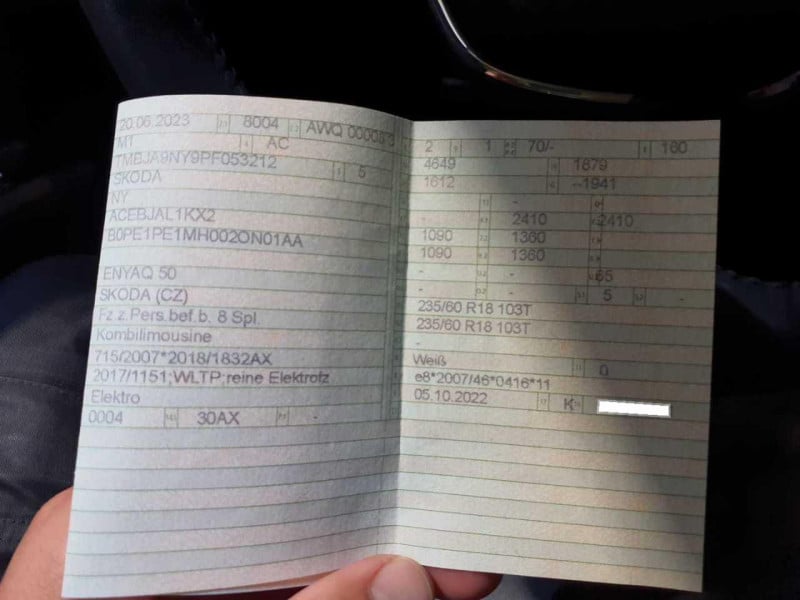 20.06.2023 8004 AWQ 00006 3
M1 AC
TMBJA9NY9PF053212 5
SKODA
NY
ACEBJAL1KX2
B0PE1PE1MH002ON01AA
ENYAQ 50
SKODA (CZ)
Fz.z.Pers.bef.b. 8 Spl.
Kombilimousine
715/2007*2018/1832AX
2017/1151;WLTP;reine Elektrofz
Elektro
0004 30AX -
2 1 70/- 160
4649 1879
1612 --1941
-
- 2410 2410
1090 1360
1090 1360
- - 65
- - 5 -
235/60 R18 103T
235/60 R18 103T
-
Weiß 0
e8*2007/46*0416*11
05.10.2022 K